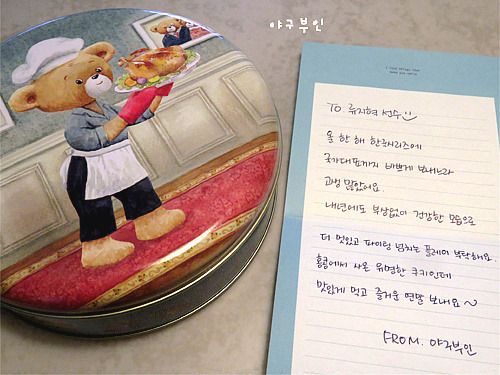 야구부인
TO. 류지혁 선수
올 한 해 한국시리즈에
국가대표까지 바쁘게 보내느라
고생 많았어요.
내년에도 부상없이 건강한 모습으로
더 멋있고 파이팅 넘치는 플레이 부탁해요.
홍콩에서 사온 유명한 쿠키인데
맛있게 먹고 즐거운 연말 보내요~
FROM. 야구부인